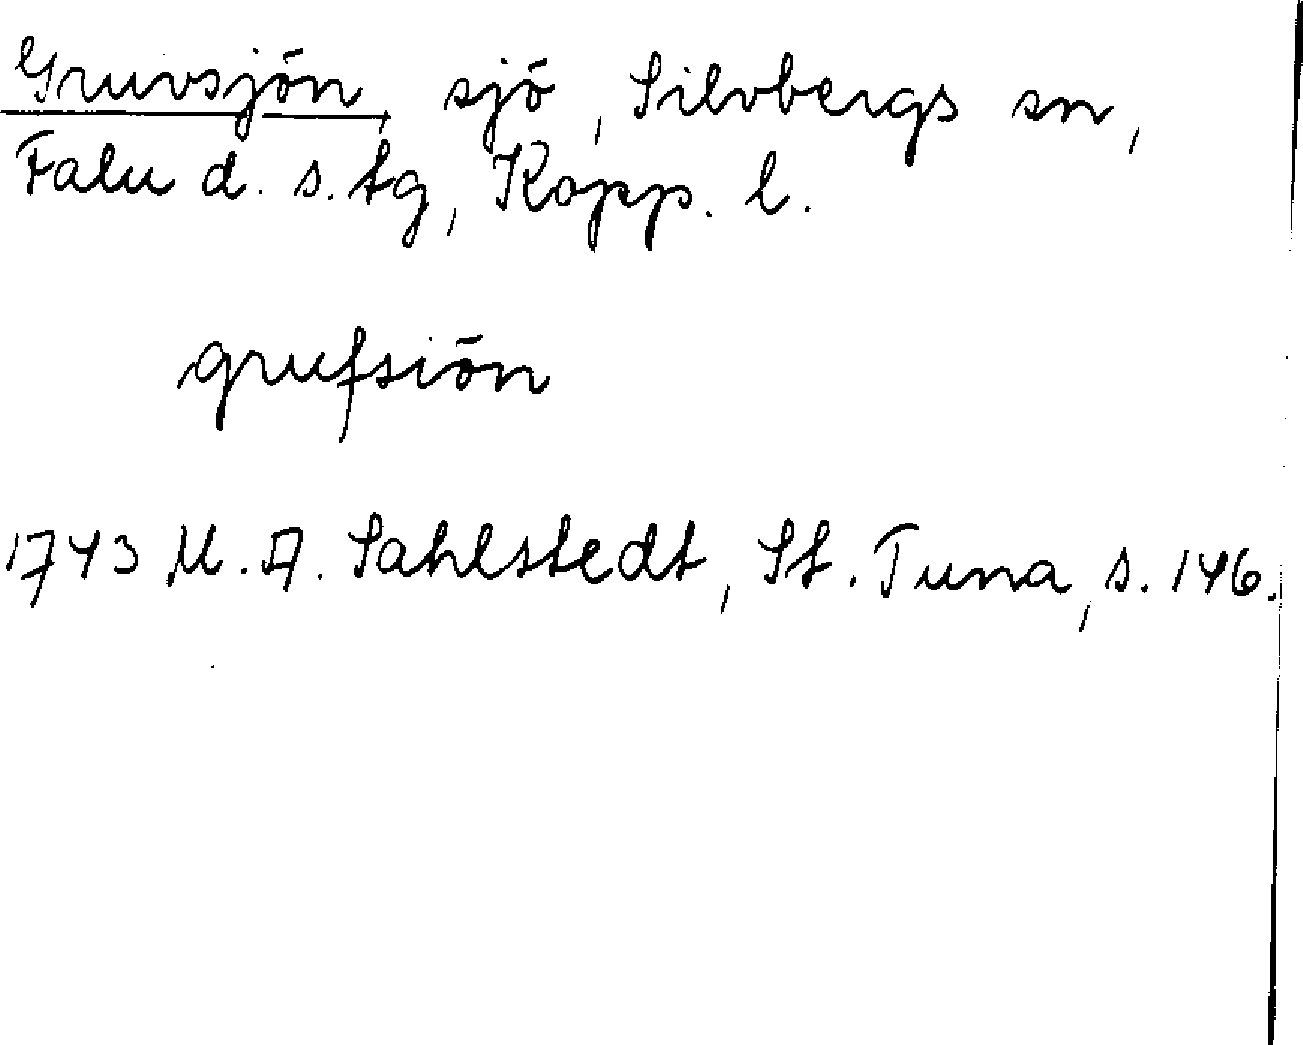 Gruvsjön, sjö, Silvbergs sn,
Falu d. s. tg, Kopp. l.
grufsiön
1743 M. A. Sahlstedt, St. Tuna, s. 146.